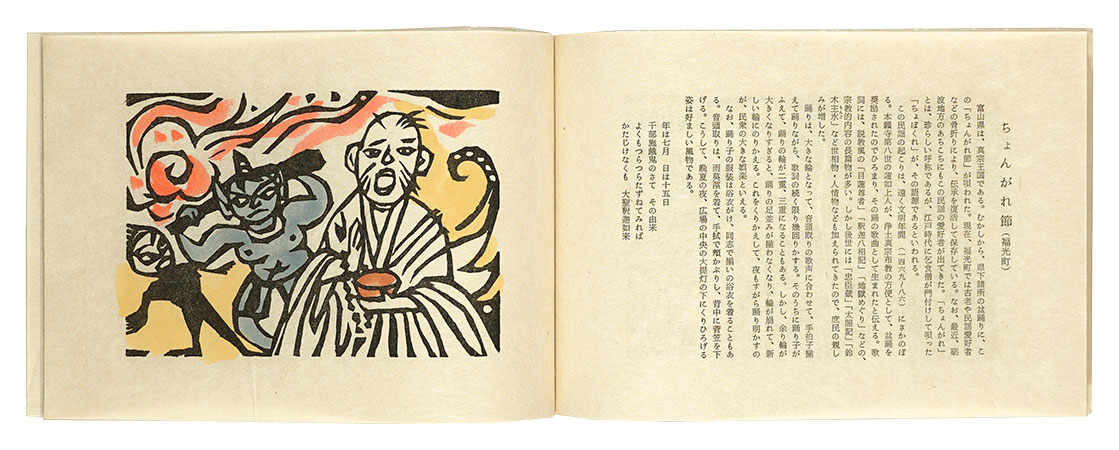 ちょんがれ節(福光町)
富山県は、真宗王国である。むかしから、県下諸所の盆踊りに、こ
の「ちょんがれ節」が唄われた。現在、福光町では古老や民謡愛好者
などの骨折りにより、伝承を復活して保存している。なお、最近、砺
波地方のあちこちにもこの民謡の愛好者が出てきた。「ちょんがれ」
とは、珍らしい呼称であるが、江戸時代に乞食僧が門付けして唄った
「ちょぼくれ」が、その語源であるといわれる。
この民謡の起こりは、遠く文明年間(一四六九〜八六)にさかのぼ
る。本願寺第八世の蓮如上人が、浄土真宗布教の方便として、盆踊を
奨励されたのでひろまり、その踊の歌曲として生まれたと伝える。歌
詞には、説教風の「目蓮尊者」「釈迦八相記」「地獄めぐり」などの、
宗教的内容の長篇物が多い。しかし後世には「忠臣蔵」「太閤記」「鈴
木主水」など世相物・人情物なども加えられてきたので、庶民の親し
みが増した。
踊りは、大きな輪となって、音頭取りの歌声に合わせて、手拍子揃
えて踊りながら、歌詞の続く限り幾回りかする。そのうちに踊り子が
ふえて、踊りの輪が二重、三重になることもある。しかし、余り輪が
大きくなりすぎると、踊りの足並みが揃わなくなり、輪が崩れて、新
しい輪にのりかえる。これをくりかえして、夜もすがら踊り明かすの
が、民衆の大きな娯楽といえる。
なお、踊り子の服装は浴衣がけ、同志で揃いの浴衣を着ることもあ
る。音頭取りは、雨茣蓙を着て、手拭で頬かぶりし、背中に菅笠を下
げる。こうして、晩夏の夜、広場の中央の大提灯の下にくりひろげる
姿は好ましい風物である。
年は七月 日は十五日
千部施餓鬼のさて その由来
よくもつらつらたずねてみれば
かたじけなくも 大聖釈迦如来